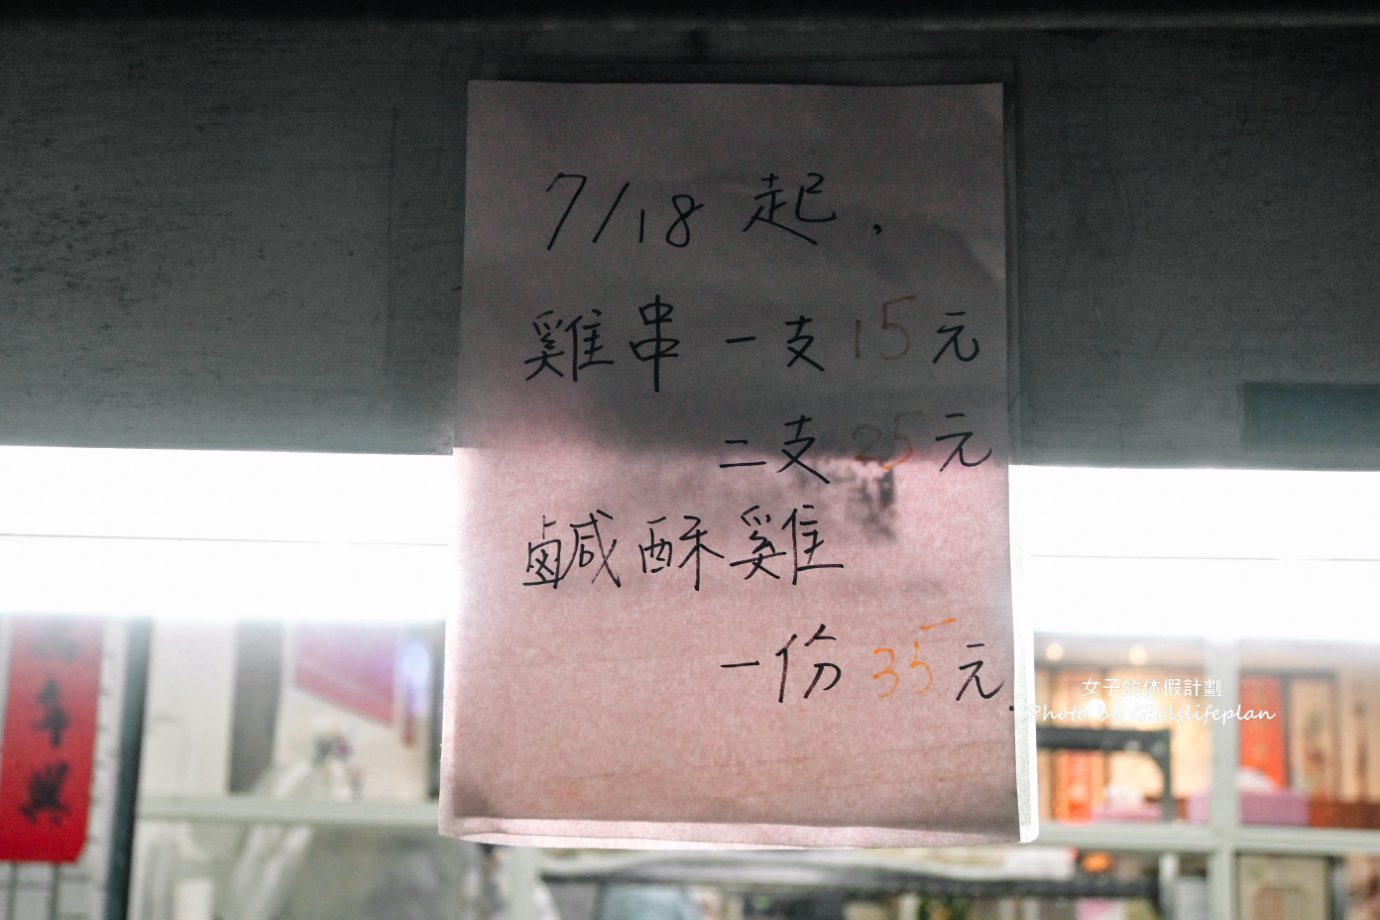 7/18 起,
雞串 一支 15元
二支 25元
鹹酥雞
一份 35元.
女子的休假計劃
Photo by Girlslifeplan